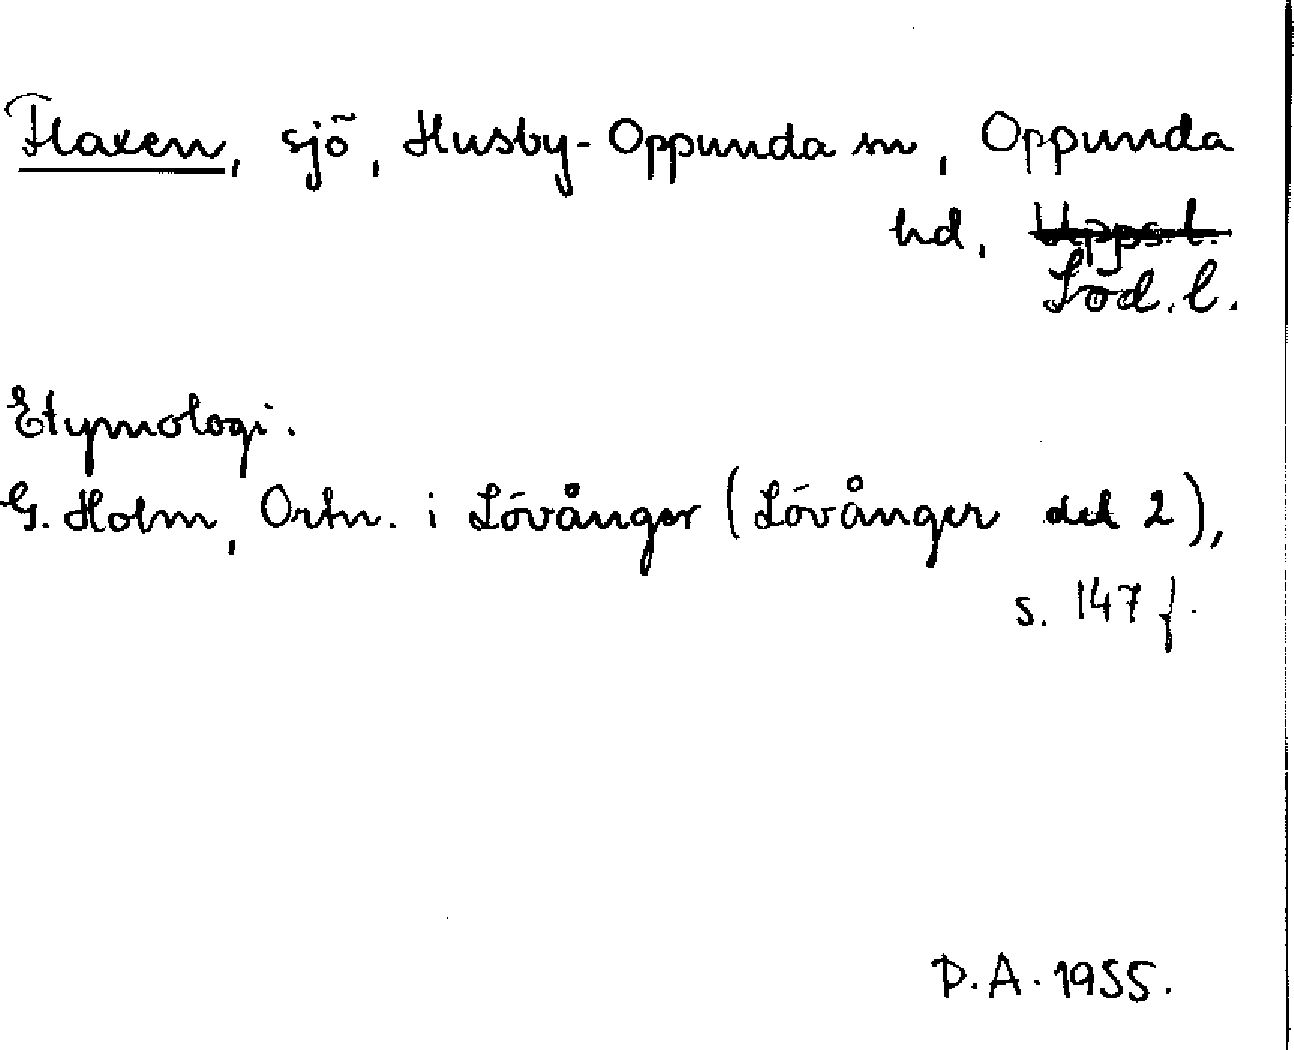 Flaxen, sjö, Husby-Oppunda sn, Oppunda
hd, Upps. l.
Söd. l.
Etymologi.
G. Holm, Ortn. i Lövånger (Lövånger del 2),
s. 147 f.
D.A. 1955.